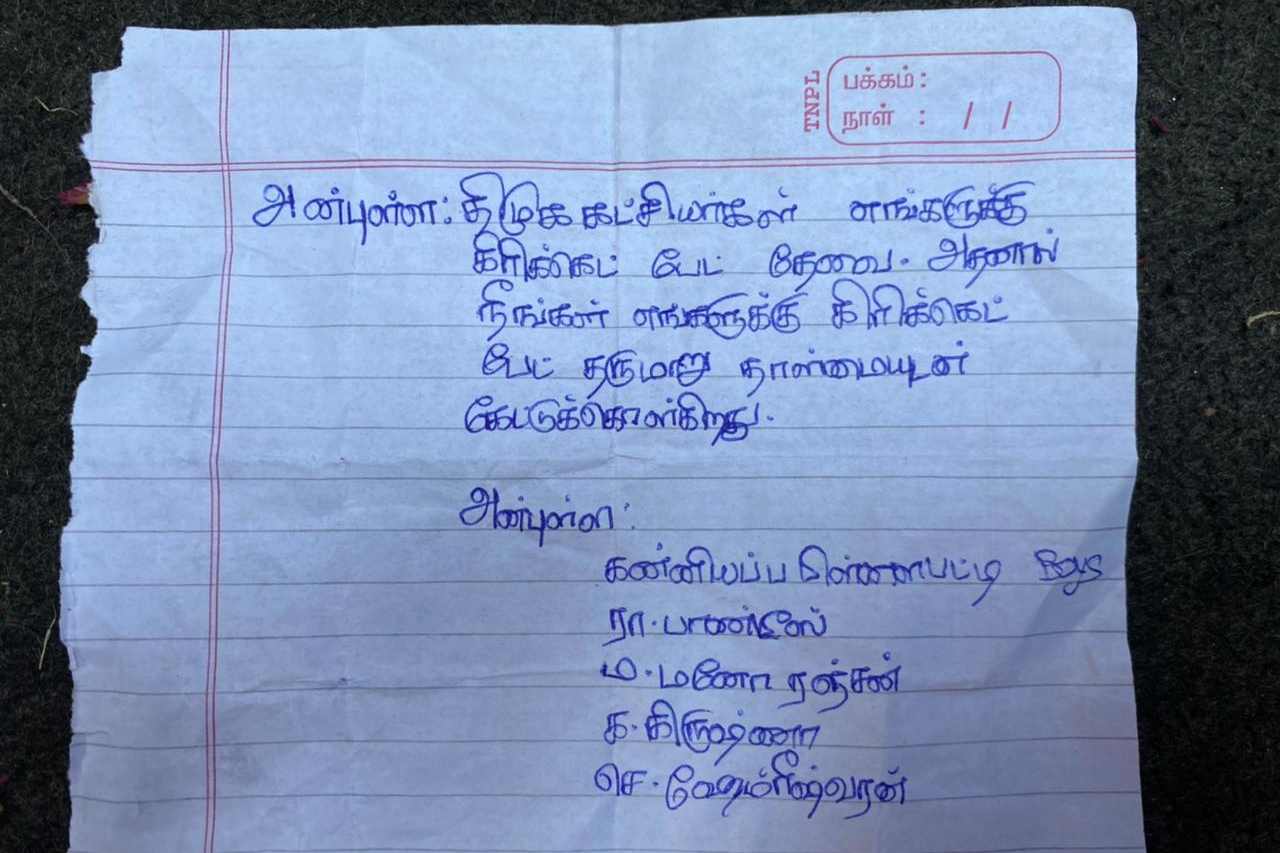 TNPL
பக்கம் :
நாள் : / /
அன்புள்ள: திமுக கட்சியர்கள் எங்களுக்கு
கிரிக்கெட் பேட் தேவை. அதனால்
நீங்கள் எங்களுக்கு கிரிக்கெட்
பேட் தருமாறு தாள்மையுடன்
கேட்டுக்கொள்கிறது.
அன்புள்ள:
கன்னியப்ப பிள்ளைபட்டி Boys
ரா.
ம. மனோ ரஞ்சன்
க. கிருஷ்ணா
செ.